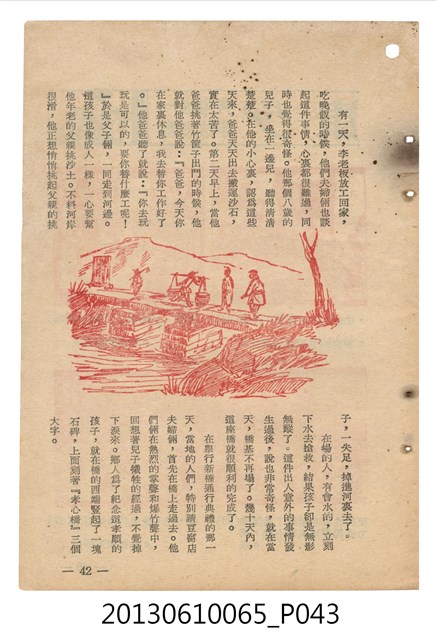 有一天，李老板放工回家，
吃晚飯的時候，他們夫婦倆也談
起這件事情，心裏都很難過，同
時也覺得很奇怪。他那個八歲的
兒子，坐在一邊兒，聽得清清
楚楚。在他的小心裏，認爲這些
天來，爸爸天天出去搬運沙石，
實在太苦了。第二天早上，當他
爸爸挑著竹籠子出門的時候，他
就對他爸爸說：『爸爸，今天你
在家裏休息，我去替你工作好了
。』他爸爸聽了就說：『你去玩
玩是可以的，要你替什麼工呢！
』於是父子倆，一同走到河邊。
這孩子也像成人一樣，一心要幫
他年老的父親挑沙土。不料河岸
很滑，他正想悄悄挑起父親的挑
子，一失足，掉進河裏去了。
在場的人，有會水的，立刻
下水去搶救，結果孩子卻是無影
無蹤了。這件出人意外的事情發
生過後，說也非常奇怪，就在當
天，橋基不再塌了。幾十天內，
這座橋就很順利的完成了。
在舉行新橋通行典禮的那一
天，當地的人們，特別請豆腐店
夫婦倆，首先在橋上走過去。他
們倆在熱烈的掌聲和爆竹聲中，
回想著兒子犧牲的經過，不覺掉
下淚來。鄉人爲了紀念這孝順的
孩子，就在橋的西端豎起了一塊
石碑，上面刻著『孝心橋』三個
大字。
— 42 —
20130610065_P043